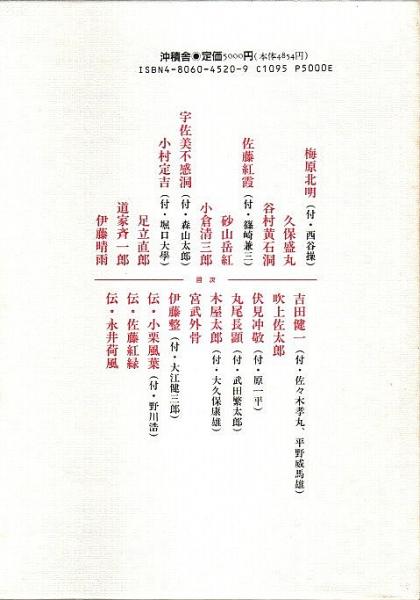 沖積舎●定価5000円(本体4854円)
ISBN4-8060-4520-9 C1095 P5000E
目次
梅原北明(付・西谷操)
久保盛丸
谷村黄石洞
佐藤紅霞(付・篠崎兼三)
砂山岳紅
小倉清三郎
宇佐美不感洞(付・森山太郎)
小村定吉(付・堀口大學)
足立直郎
道家斉一郎
伊藤晴雨
吉田健一(付・佐々木孝丸、平野威馬雄)
吹上佐太郎
伏見冲敬(付・原一平)
丸尾長顕(付・武田繁太郎)
木屋太郎(付・大久保康雄)
宮武外骨
伊藤整(付・大江健三郎)
伝・小栗風葉(付・野川浩)
伝・佐藤紅緑
伝・永井荷風